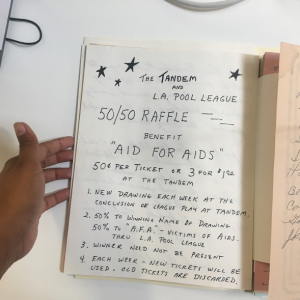 THE TANDEM
AND
L.A. POOL LEAGUE
50/50 RAFFLE
BENEFIT
"AID FOR AIDS"
50¢ PER TICKET OR 3 FOR $1.00
AT THE TANDEM
1. NEW DRAWING EACH WEEK AT THE
CONCLUSION OF LEAGUE PLAY AT TANDEM.
2. 50% TO WINNING NAME OF DRAWING
50% TO "A.F.A." - VICTIMS OF AIDS.
THRU L.A. POOL LEAGUE
3. WINNER NEED NOT BE PRESENT
4. EACH WEEK - NEW TICKETS WILL BE
USED. OLD TICKETS ARE DISCARDED.